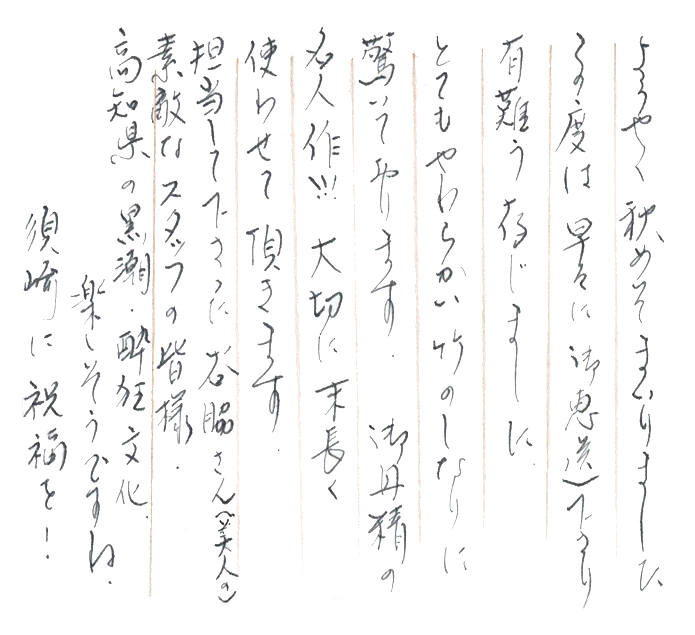 ようやく秋めいてまいりました
この度は早々に御恵送下さり
有難う存じました.
とてもやわらかい竹のしなりに
驚いております. 御丹精の
名人作!!! 大切に末長く
使わせて頂きます.
担当して下さった谷脇さん(美人の)
素敵なスタッフの皆様.
高知県の黒潮・酔狂文化.
楽しそうですね.
須崎に祝福を!